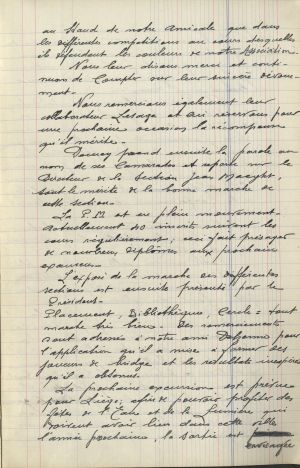 au stand de notre Amicale que dans
les différentes compétitions au cours desquelles
ils défendent les couleurs de notre Association.
Nous leur disons merci et conti-
nuons de compter sur leur sincère dévoue-
ment.
Nous remercions également leur
collaborateur Lesage et lui réservons pour
une prochaine occasion la récompense
qu'il mérite.
prend ensuite la parole au
nom de ses Camarades et reporte sur le
Directeur de la Section Jean
tout le mérite de la bonne marche de
cette section.
La P.M est en plein mouvement.
Actuellement 40 inscrits suivent les
cours régulièrement; ceci fait présager
de nombreux diplômes aux prochains
examens.
L'exposé de la marche des différentes
sections est ensuite présenté par le
Président.
Placement, Bibliothèque, Cercle = tout
marche très bien. Des remerciements
sont adressés à notre ami pour
l'application qu'il a mise à former des
joueurs de Bridge et les résultats inespérés
qu'il a obtenus.
La prochaine excursion est prévue
pour Liège, afin de pouvoir profiter des
fêtes de l'Eau et de la Lumière qui
doivent avoir lieu dans cette ville
l'année prochaine, la sortie est
envisagée